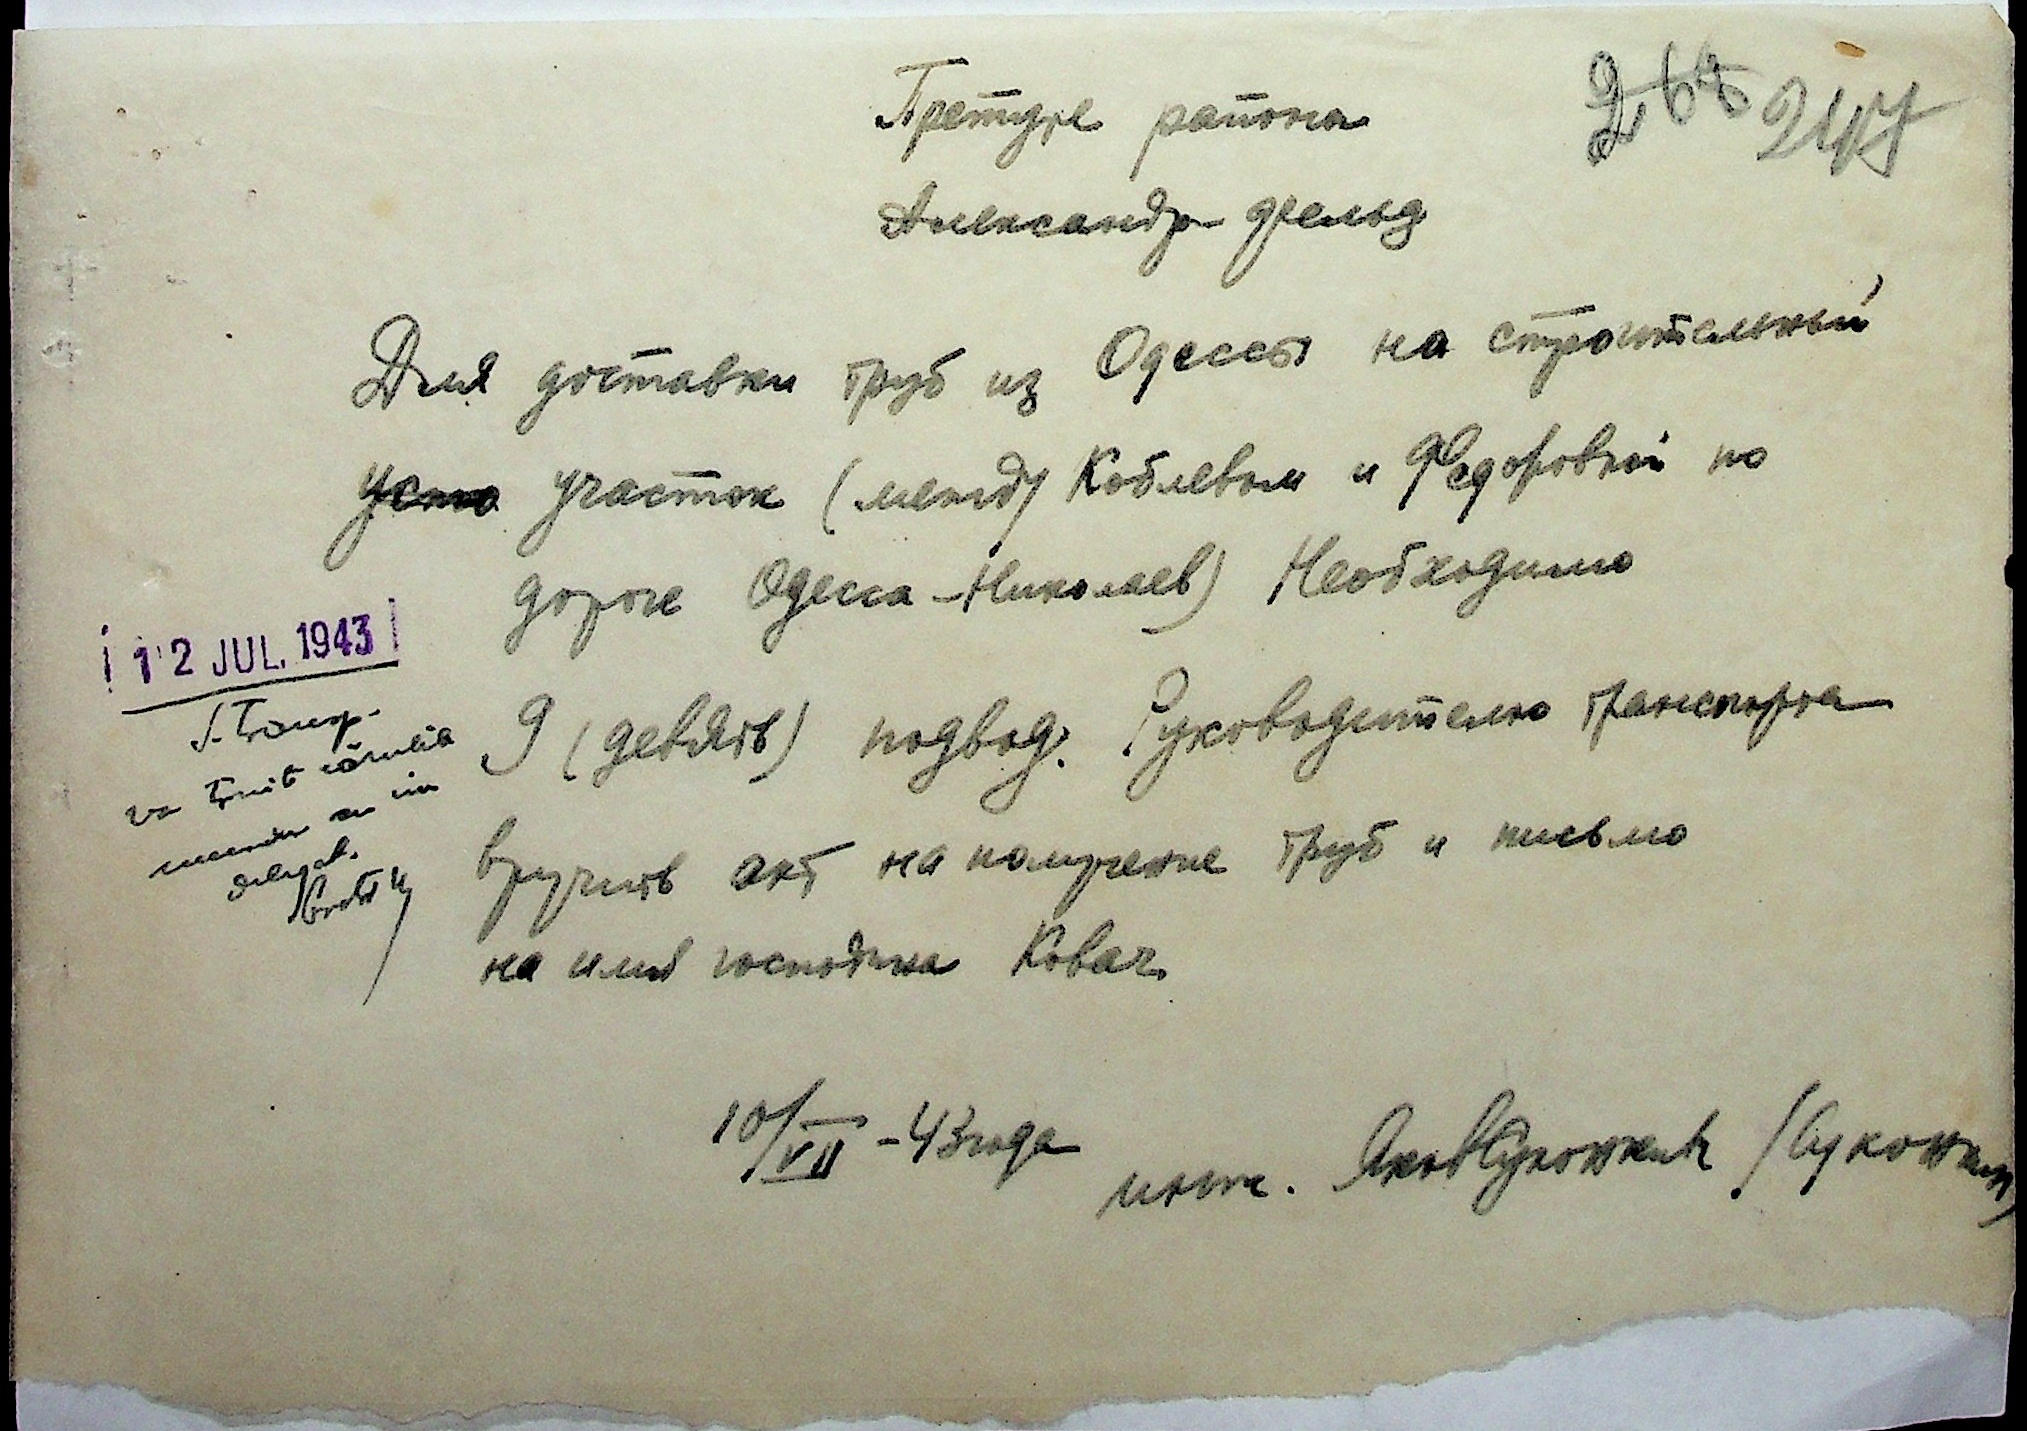 217
Претуре района
Александрфельд
Для доставки труб из Одессы на строительный
участок (между Коблевом и Федоровкой по
дороге Одесса-Николаев) Необходимо
9 (девять) подвод. Руководителю транспорта
вручить акт на получение труб и письмо
на имя господина Ковач.
12 JUL. 1943
S. Transp.
va trimite căruțele
10/VII -43 года
инж.